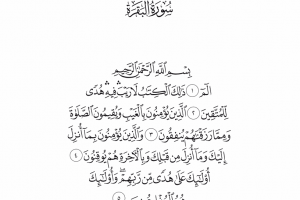 سُورَةُ البَقَرَةِ
بِسْمِ اللَّهِ الرَّحْمَٰنِ الرَّحِيمِ
الٓمٓ ١ ذَٰلِكَ الْكِتَٰبُ لَا رَيْبَ ۛ فِيهِ ۛ هُدًى
لِّلْمُتَّقِينَ ٢ الَّذِينَ يُؤْمِنُونَ بِالْغَيْبِ وَيُقِيمُونَ الصَّلَوٰةَ
وَمِمَّا رَزَقْنَٰهُمْ يُنفِقُونَ ٣ وَالَّذِينَ يُؤْمِنُونَ بِمَا أُنزِلَ
إِلَيْكَ وَمَا أُنزِلَ مِن قَبْلِكَ وَبِالْآخِرَةِ هُمْ يُوقِنُونَ ٤
أُولَٰئِكَ عَلَىٰ هُدًى مِّن رَّبِّهِمْ ۖ وَأُولَٰئِكَ